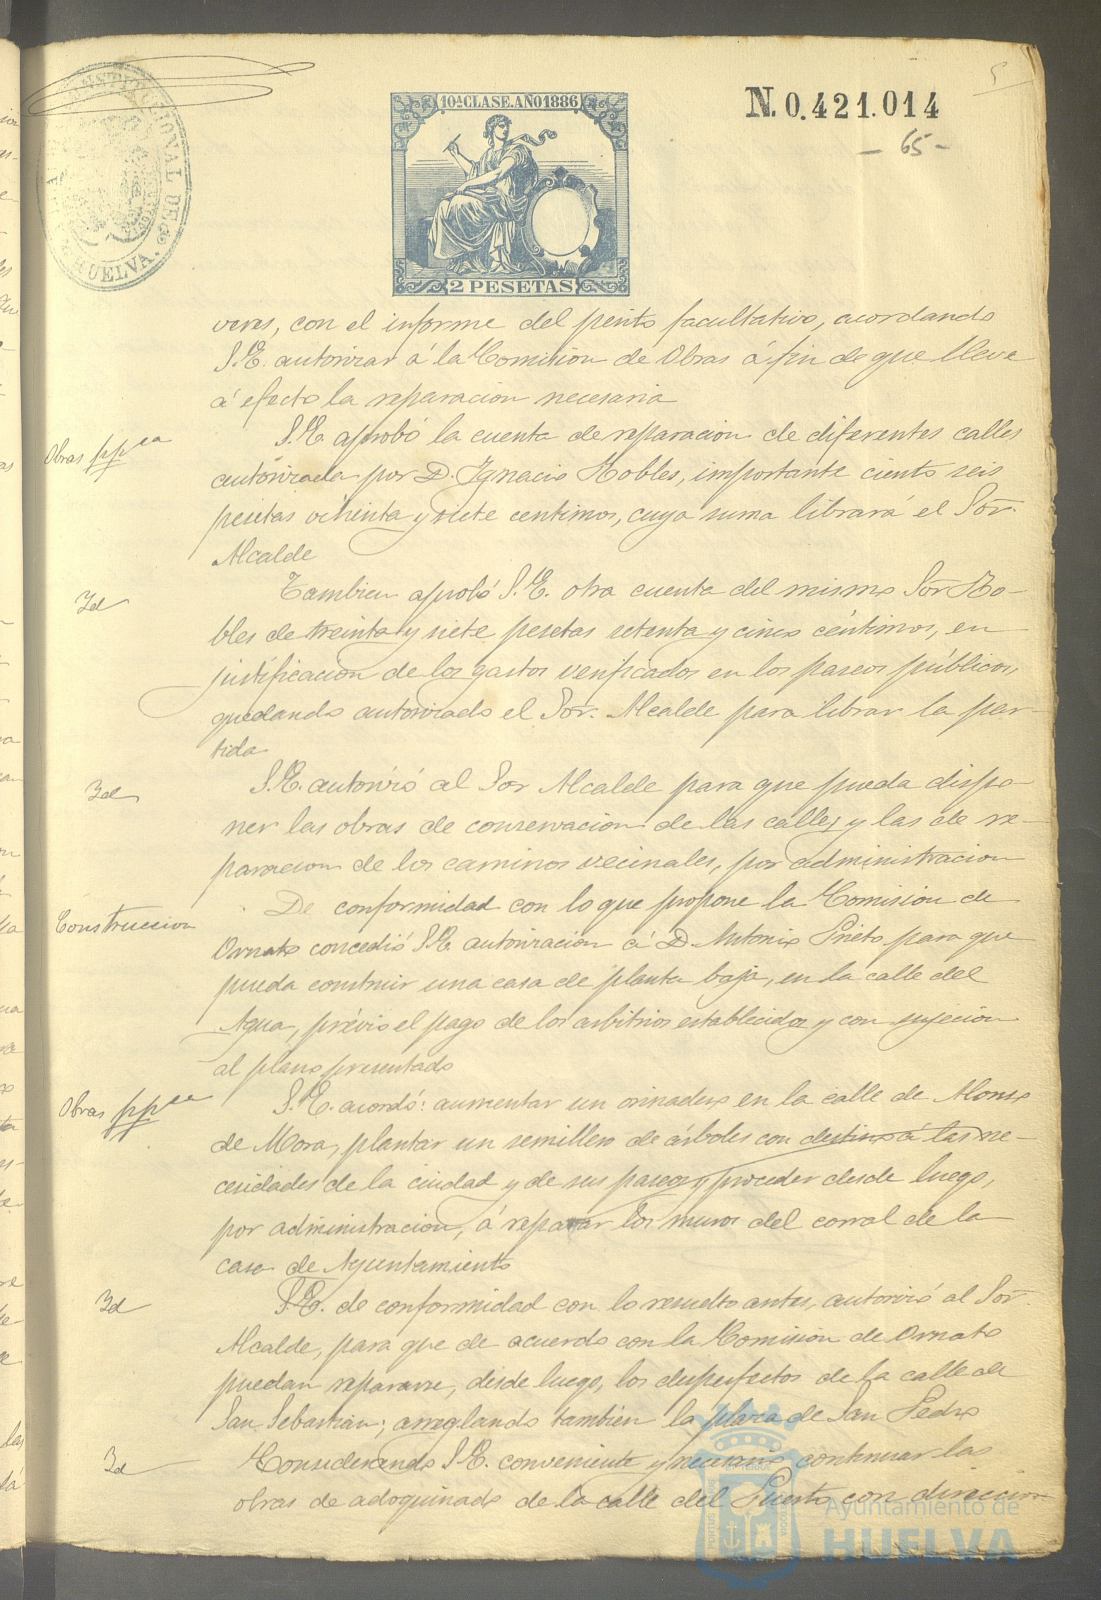 CONSTITUCIONAL DE
HUELVA.
10ª CLASE. AÑO 1886
2 PESETAS
N. 0.421.014
- 65 -
5
veres, con el informe del perito facultativo, acordando
S.E. autorizar á la Comision de Obras á fin de que lleve
á efecto la reparacion necesaria
Obras ppcas
S.E. aprobó la cuenta de reparacion de diferentes calles
autorizada por D. Ignacio Robles, importante ciento seis
pesetas ochenta y siete centimos, cuya suma librará el Sor.
Alcalde
Id
Tambien aprobó S.E. otra cuenta del mismo Sor Ro-
bles de treinta y siete pesetas setenta y cinco céntimos, en
justificacion de los gastos verificados en los paseos públicos,
quedando autorizado el Sor. Alcalde para librar la par-
tida
Id
S.E. autorizó al Sor Alcalde para que pueda dispo-
ner las obras de conservacion de las calles y las de re-
paracion de los caminos vecinales, por administracion
Construccion
De conformidad con lo que propone la Comision de
Ornato concedió S.E. autorizacion á D. Antonio Prieto para que
pueda construir una casa de planta baja, en la calle del
Agua, prévio el pago de los arbitrios establecidos y con sujecion
al plano presentado
Obras ppcas
S.E. acordó: aumentar un orinadero en la calle de Alonso
de Mora, plantar un semillero de árboles con destino á las ne-
cesidades de la ciudad y de sus paseos y proceder desde luego,
por administracion, á reparar los muros del corral de la
casa de Ayuntamiento
Id
S.E. de conformidad con lo resuelto antes, autorizó al Sor.
Alcalde, para que de acuerdo con la Comision de Ornato
puedan repararse, desde luego, los desperfectos de la calle de
San Sebastian; arreglando tambien la plaza de San Pedro
Id
Considerando S.E. conveniente y necesario continuar las
obras de adoquinado de la calle del Puerto con direccion
Ayuntamiento de
HUELVA